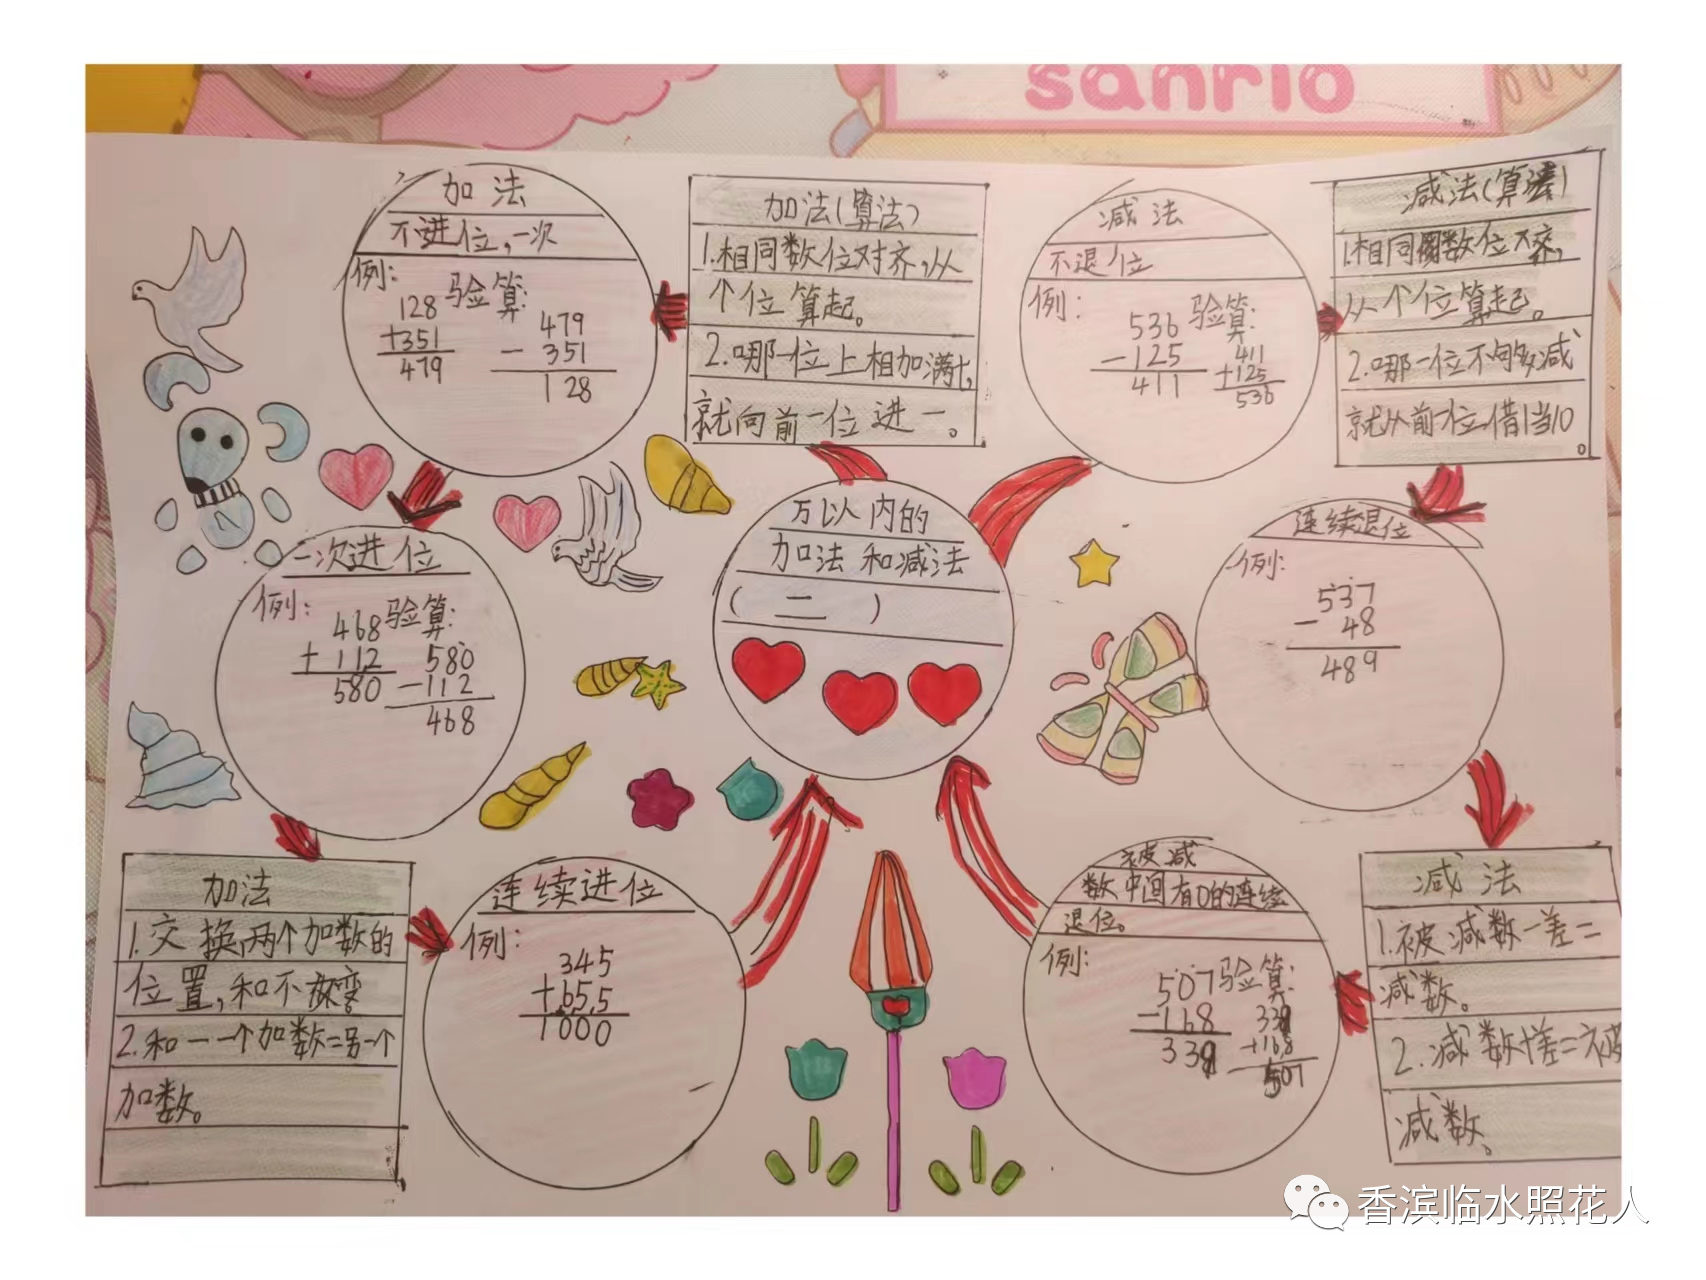 sanrio
加法
不进位,一次
例:
128 验算:
+351
479
479
- 351
128
加法(算法)
1.相同数位对齐,从
个位算起。
2.哪一位上相加满十,
就向前一位进一。
减法
不退位
例:
536 验算:
-125
411
411
+125
536
减法(算法)
1.相同数位
从个位算起。
2.哪一位不够减
就从前一位借1当10
。
万以内的
加法和减法
(二)
一次进位
例:
468 验算:
+112
580
580
-112
468
连续退位
例:
537
- 48
489
加法
1.交换两个加数的
位置,和不变。
2.和一一个加数=另一个
加数。
连续进位
例:
345
+655
1000
被减
数中间有0的连续
退位。
例:
507 验算:
-168
339
339
+168
507
减法
1.被减数-差=
减数。
2.减数+差=被
减数。
香滨临水照花人